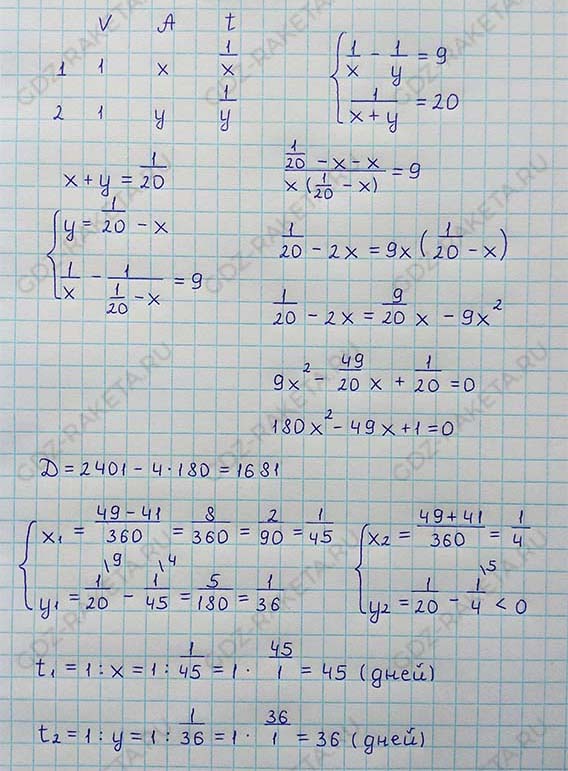 V A t
1 1 x 1/x
2 1 y 1/y
{ 1/x - 1/y = 9
1/(x+y) = 20
x + y = 1/20
{ y = 1/20 - x
1/x - 1/(1/20 - x) = 9
(1/20 - x - x)/(x(1/20 - x)) = 9
1/20 - 2x = 9x(1/20 - x)
1/20 - 2x = 9/20 x - 9x²
9x² - 49/20 x + 1/20 = 0
180x² - 49x + 1 = 0
D = 2401 - 4·180 = 1681
{ x₁ = (49-41)/360 = 8/360 = 2/90 = 1/45
y₁ = 1/20 \9 - 1/45 \4 = 5/180 = 1/36
{ x₂ = (49+41)/360 = 1/4
y₂ = 1/20 - 1/4 \5 < 0
t₁ = 1 : x = 1 : 1/45 = 1 · 45/1 = 45 (дней)
t₂ = 1 : y = 1 : 1/36 = 1 · 36/1 = 36 (дней)
GDZ-RAKETA.RU